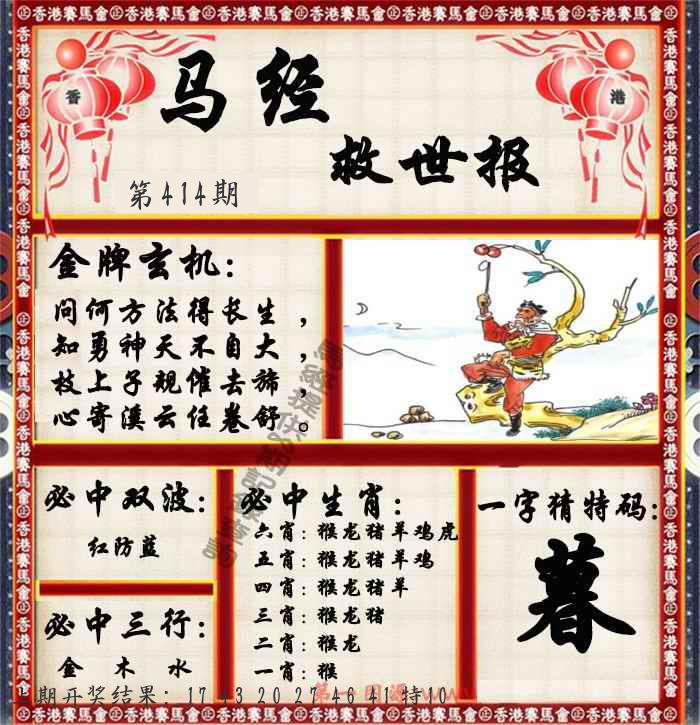 香港賽馬會
香 港
马经
救世报
第414期
金牌玄机:
问何方法得长生,
知勇神天不自大,
枝上子规催去旆,
心寄溪云任卷舒。
必中双波:
红防蓝
必中三行:
金 木 水
必中生肖:
六肖:猴龙猪羊鸡虎
五肖:猴龙猪羊鸡
四肖:猴龙猪羊
三肖:猴龙猪
二肖:猴龙
一肖:猴
一字猜特码:
暮
期开奖结果:17 43 20 27 46 41特10